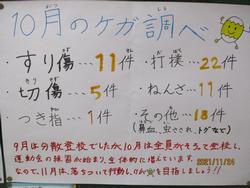 10月のケガ調べ
・すり傷…11件
・打撲…22件
・切傷…5件
・ねんざ…11件
・つき指…1件
・その他…18件
(鼻血、虫さされ、トゲなど)
9月は分散登校でしたが、10月は全員がそろって登校し、
運動会の練習が始まり、全体的に増えています。
なので、11月は、落ちついて行動し、けが を目指しましょう!!
2021/11/24